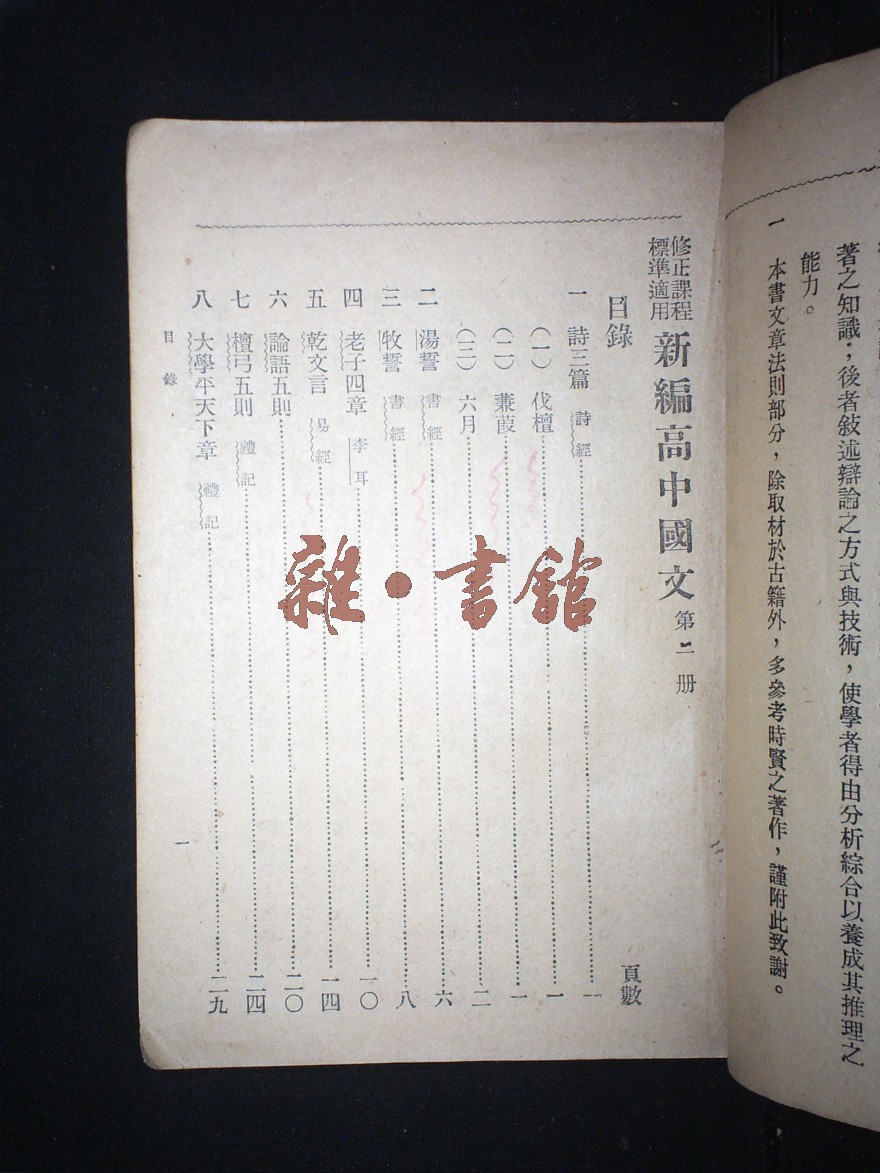 著之知識；後者敍述辯論之方式與技術，使學者得由分析綜合以養成其推理之
能力。
一　本書文章法則部分，除取材於古籍外，多參考時賢之著作，謹附此致謝。
修正課程標準適用　新編高中國文　第二册
目錄　頁數
一　詩三篇　詩經……一
（一）伐檀……一
（二）蒹葭……一
（三）六月……二
二　湯誓　書經……六
三　牧誓　書經……八
四　老子四章　李耳……一〇
五　乾文言　易經……一四
六　論語五則……二〇
七　檀弓五則　禮記……二四
八　大學平天下章　禮記……二九
目錄　一
雜·書館